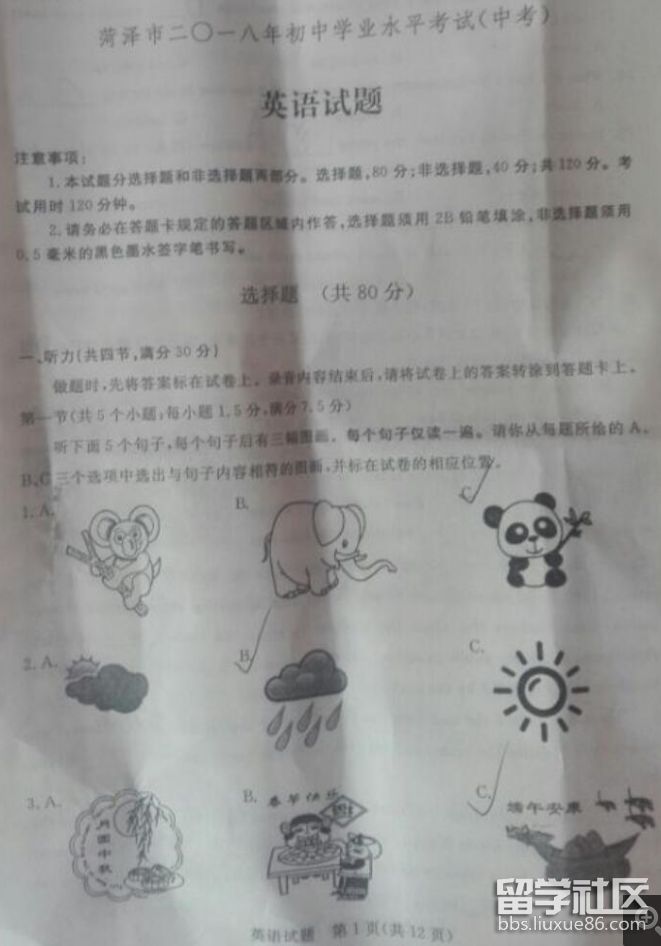 菏泽市二〇一八年初中学业水平考试(中考)
英语试题
注意事项:
1.本试题分选择题和非选择题两部分。选择题,80分;非选择题,40分;共120分。考
试用时120分钟。
2.请务必在答题卡规定的答题区域内作答,选择题须用2B铅笔填涂,非选择题须用
0.5毫米的黑色墨水签字笔书写。
选择题 (共80分)
一、听力(共四节,满分30分)
做题时,先将答案标在试卷上。录音内容结束后,请将试卷上的答案转涂到答题卡上。
第一节(共5个小题;每小题1.5分,满分7.5分)
听下面5个句子,每个句子后有三幅图画。每个句子仅读一遍。请你从每题所给的A、
B、C三个选项中选出与句子内容相符的图画,并标在试卷的相应位置。
1. A. B. C.
2. A. B. C.
3. A. B. C.
月圆中秋
春节快乐
端午安康
英语试题 第1页(共12页)
留学社区
bbs.liuxue86.com